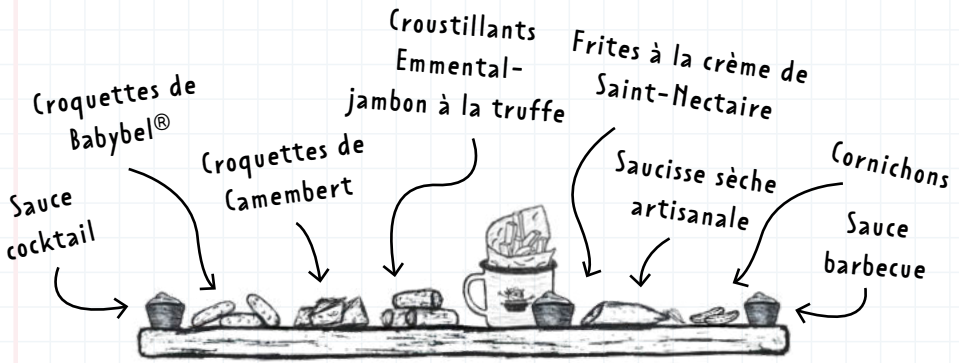 Sauce
cocktail
Croquettes de
Babybel®
Croquettes de
Camembert
Croustillants
Emmental-
jambon à la truffe
Frites à la crème de
Saint-Nectaire
Saucisse sèche
artisanale
Cornichons
Sauce
barbecue